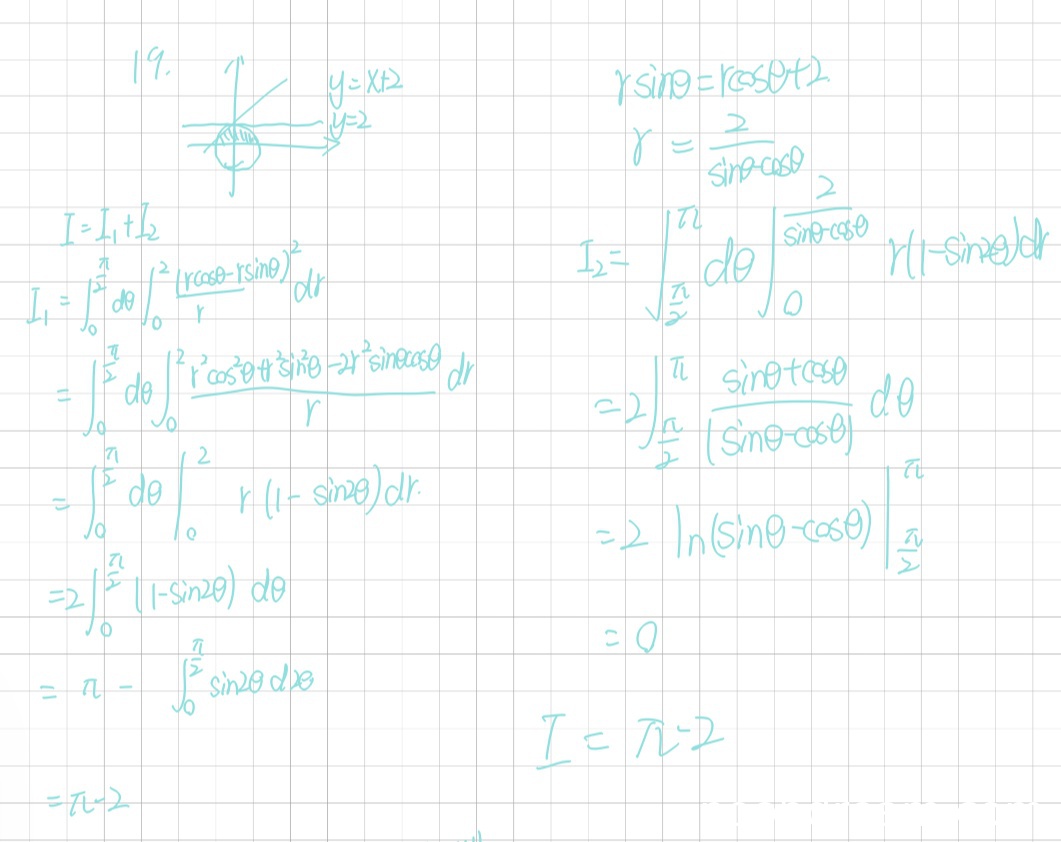 19.
y=x+2
y=2
I=I₁+I₂
I₁ = ∫₀^{π/2} dθ ∫₀² (rcosθ-rsinθ)²/r dr
= ∫₀^{π/2} dθ ∫₀² (r²cos²θ+r²sin²θ-2r²sinθcosθ)/r dr
= ∫₀^{π/2} dθ ∫₀² r(1-sin2θ)dr.
=2∫₀^{π/2} (1-sin2θ) dθ
= π - ∫₀^{π/2} sin2θ d2θ
=π-2
rsinθ=rcosθ+2.
r = 2/(sinθ-cosθ)
I₂= ∫_{π/2}^{π} dθ ∫₀^{2/(sinθ-cosθ)} r(1-sin2θ)dr
=2∫_{π/2}^{π} (sinθ+cosθ)/(sinθ-cosθ) dθ
=2 ln(sinθ-cosθ)|_{π/2}^{π}
= 0
I = π-2